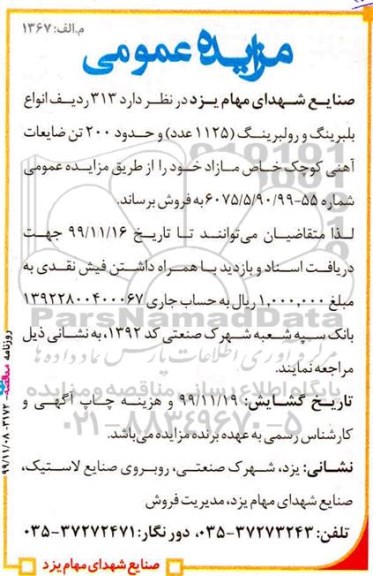 م.الف: ۱۳۶۷
مزایده عمومی
صنایع شهدای مهام یزد در نظر دارد ۳۱۳ ردیف انواع
بلبرینگ و رولبرینگ (۱۱۲۵ عدد) و حدود ۲۰۰ تن ضایعات
آهنی کوچک خاص مازاد خود را از طریق مزایده عمومی
شماره ۵۵-۶۰۷۵/۵/۹۰/۹۹ به فروش برساند.
لذا متقاضیان می‌توانند تا تاریخ ۹۹/۱۱/۱۶ جهت
دریافت اسناد و بازدید با همراه داشتن فیش نقدی به
مبلغ ۱,۰۰۰,۰۰۰ ریال به حساب جاری ۱۳۹۲۲۸۰۰۴۰۰۰۶۷
بانک سپه شعبه شهرک صنعتی کد ۱۳۹۲، به نشانی ذیل
مراجعه نمایند.
تاریخ گشایش: ۹۹/۱۱/۱۹ و هزینه چاپ آگهی و
کارشناس رسمی به عهده برنده مزایده می‌باشد.
نشانی: یزد، شهرک صنعتی، روبروی صنایع لاستیک،
صنایع شهدای مهام یزد، مدیریت فروش
تلفن: ۳۷۲۷۳۲۴۳-۰۳۵، دور نگار: ۳۷۲۷۲۴۷۱-۰۳۵
صنایع شهدای مهام یزد
روزنامه مناقصه ۳۱۷۲ - ۹۹/۱۱/۰۸
ParsNamadData
مرکز فرآوری اطلاعات پارس نماد داده ها
پایگاه اطلاع رسانی مناقصه و مزایده
۰۲۱-۸۸۳۴۹۶۷۰-۵